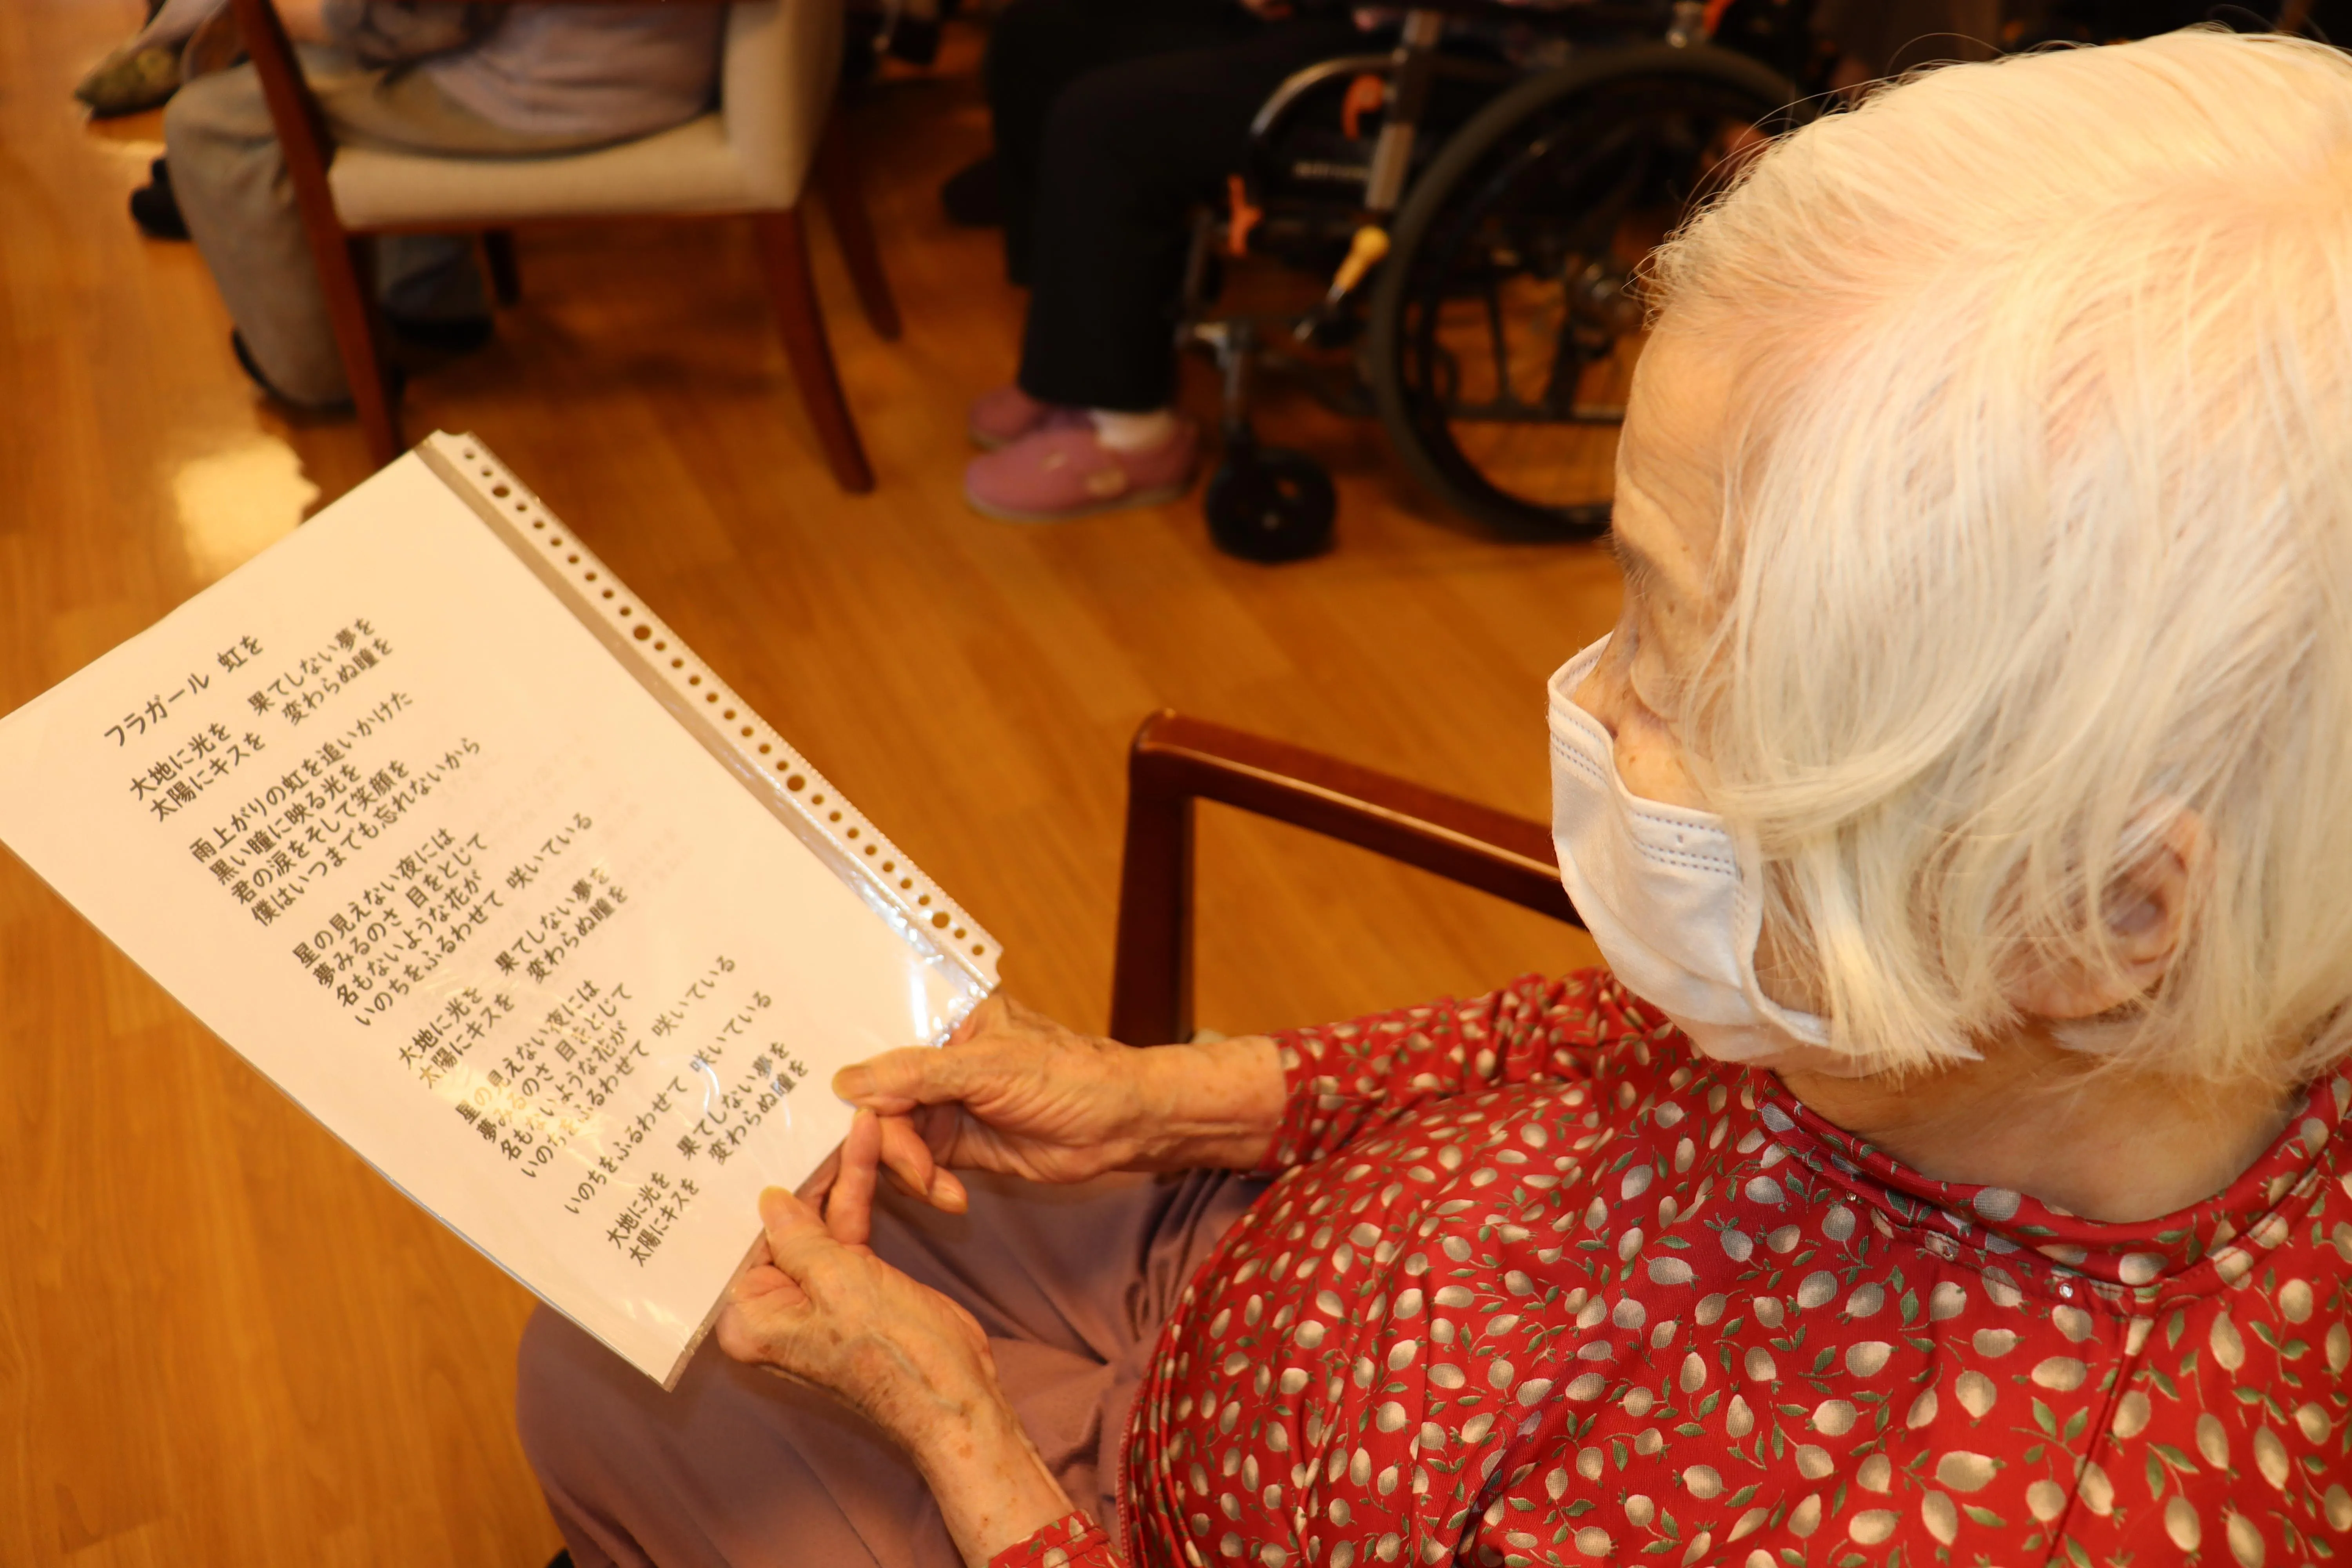 フラガール 虹を
大地に光を 果てしない夢を
太陽にキスを 変わらぬ瞳を
雨上がりの虹を追いかけた
黒い瞳に映る光を
君の涙をそして笑顔を
僕はいつまでも忘れないから
星の見えない夜には
夢みるのさ 目をとじて
名もないような花が
いのちをふるわせて 咲いている
大地に光を 果てしない夢を
太陽にキスを 変わらぬ瞳を
星の見えない夜には
夢みるのさ 目をとじて
名もないような花が
いのちをふるわせて 咲いている
いのちをふるわせて 咲いている
大地に光を 果てしない夢を
太陽にキスを 変わらぬ瞳を